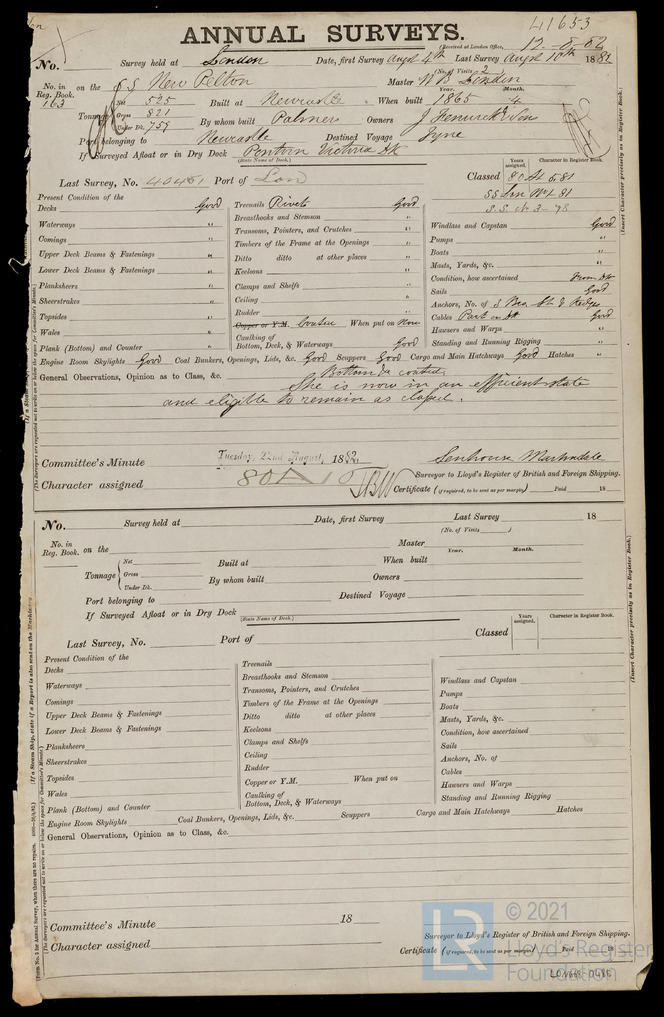 41653
ANNUAL SURVEYS.
(Received at London Office, 12-8-82
No. Survey held at London Date, first Survey Augst 4th Last Survey Augst 10th 1882
(No. of Visits 2)
No. in Reg. Book. 163 on the S S New Pelton Master W B Linden
Year. Month.
Tonnage Net 525 Built at Newcastle When built 1865 4
Gross 821
Under Dk. 759 By whom built Palmers Owners J Fenwick & Son
Port belonging to Newcastle Destined Voyage Tyne
If Surveyed Afloat or in Dry Dock Pontoon Victoria Dk
(State Name of Dock.)
Years assigned. Character in Register Book.
Last Survey, No. 40451 Port of Lon Classed 80 A1 5,81
SS Lon No 1 81
S.S. No 3-78
Present Condition of the
Decks Good
Waterways "
Comings "
Upper Deck Beams & Fastenings "
Lower Deck Beams & Fastenings "
Planksheers "
Sheerstrakes "
Topsides "
Wales "
Plank (Bottom) and Counter "
Treenails Rivets Good
Breasthooks and Stemson "
Transoms, Pointers, and Crutches "
Timbers of the Frame at the Openings "
Ditto ditto at other places "
Keelsons "
Clamps and Shelfs "
Ceiling "
Rudder "
Copper or Y.M. When put on Now
Caulking of
Bottom, Deck, & Waterways Good
Windlass and Capstan Good
Pumps "
Boats "
Masts, Yards, &c. "
Condition, how ascertained From Dk
Sails Good
Anchors, No. of 3 Bow St & Kedge
Cables Part on Dk Good
Hawsers and Warps "
Standing and Running Rigging "
Engine Room Skylights Good Coal Bunkers, Openings, Lids, &c. Good Scuppers Good Cargo and Main Hatchways Good Hatches "
General Observations, Opinion as to Class, &c. Bottom coated
She is now in an efficient state
and eligible to remain as classed.
Committee's Minute Tuesday, 22nd August, 1882.
Senhouse Martindale
Surveyor to Lloyd's Register of British and Foreign Shipping.
Character assigned 80A
Certificate (if required, to be sent as per margin) Paid 18
(Insert Character precisely as in Register Book.)
No. Survey held at Date, first Survey Last Survey 18
(No. of Visits )
No. in Reg. Book. on the Master
Year. Month.
Tonnage Net Built at When built
Gross
Under Dk. By whom built Owners
Port belonging to Destined Voyage
If Surveyed Afloat or in Dry Dock
(State Name of Dock.)
Years assigned. Character in Register Book.
Last Survey, No. Port of Classed
Present Condition of the
Decks
Waterways
Comings
Upper Deck Beams & Fastenings
Lower Deck Beams & Fastenings
Planksheers
Sheerstrakes
Topsides
Wales
Plank (Bottom) and Counter
Treenails
Breasthooks and Stemson
Transoms, Pointers, and Crutches
Timbers of the Frame at the Openings
Ditto ditto at other places
Keelsons
Clamps and Shelfs
Ceiling
Rudder
Copper or Y.M. When put on
Caulking of
Bottom, Deck, & Waterways
Windlass and Capstan
Pumps
Boats
Masts, Yards, &c.
Condition, how ascertained
Sails
Anchors, No. of
Cables
Hawsers and Warps
Standing and Running Rigging
Engine Room Skylights Coal Bunkers, Openings, Lids, &c. Scuppers Cargo and Main Hatchways Hatches
General Observations, Opinion as to Class, &c.
Committee's Minute 18
Surveyor to Lloyd's Register of British and Foreign Shipping.
Character assigned
Certificate (if required, to be sent as per margin) Paid 18
(Insert Character precisely as in Register Book.)
LR © 2021
Lloyd's Register
Foundation